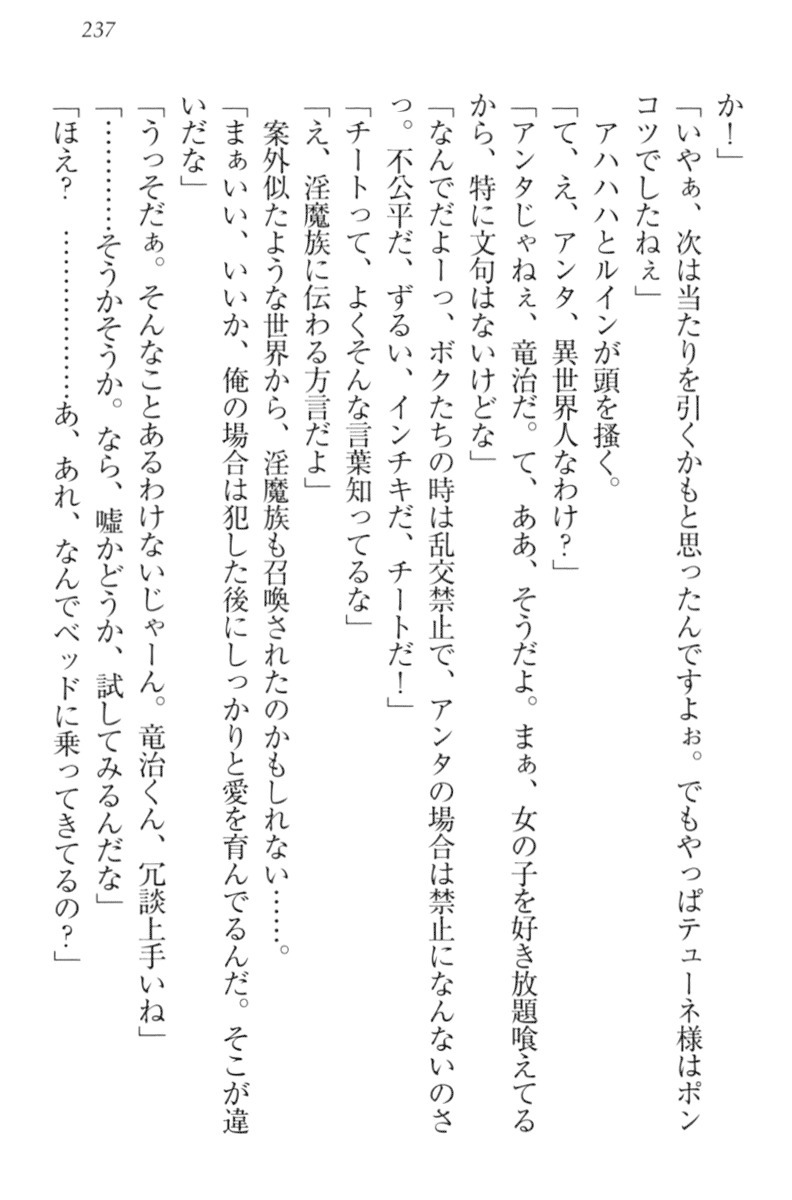 237
か！」
「いやぁ、次は当たりを引くかもと思ったんですよぉ。でもやっぱテューネ様はポン
コツでしたねぇ」
　アハハハとルインが頭を掻く。
「て、え、アンタ、異世界人なわけ？」
「アンタじゃねぇ、竜治だ。て、ああ、そうだよ。まぁ、女の子を好き放題喰えてる
から、特に文句はないけどな」
「なんでだよーっ、ボクたちの時は乱交禁止で、アンタの場合は禁止になんないのさ
っ。不公平だ、ずるい、インチキだ、チートだ！」
「チートって、よくそんな言葉知ってるな」
「え、淫魔族に伝わる方言だよ」
　案外似たような世界から、淫魔族も召喚されたのかもしれない……。
「まぁいい、いいか、俺の場合は犯した後にしっかりと愛を育んでるんだ。そこが違
いだな」
「うっそだぁ。そんなことあるわけないじゃーん。竜治くん、冗談上手いね」
「…………そうかそうか。なら、嘘かどうか、試してみるんだな」
「ほえ？　………………あ、あれ、なんでベッドに乗ってきてるの？」